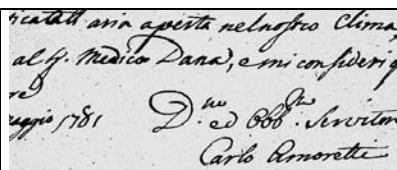 ricatall'aria aperta nel nostro Clima,
al Sr. Medico Dana, e mi consideri q
re
maggio 1781 D.mo ed Obb.mo Servitor
Carlo Amoretti